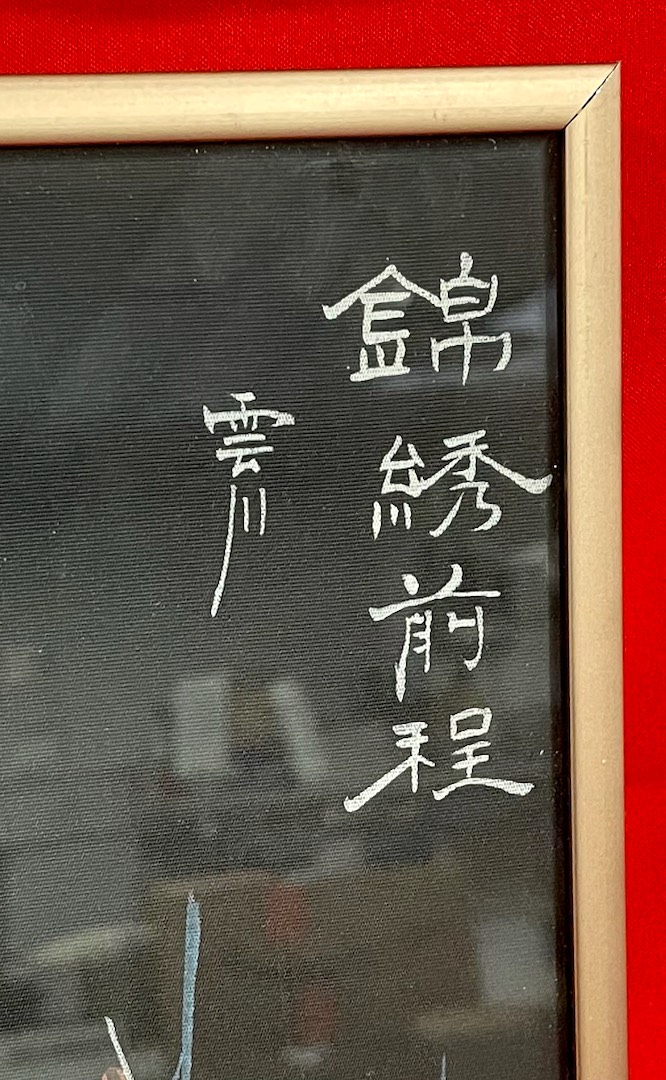 錦綉前程
雲川